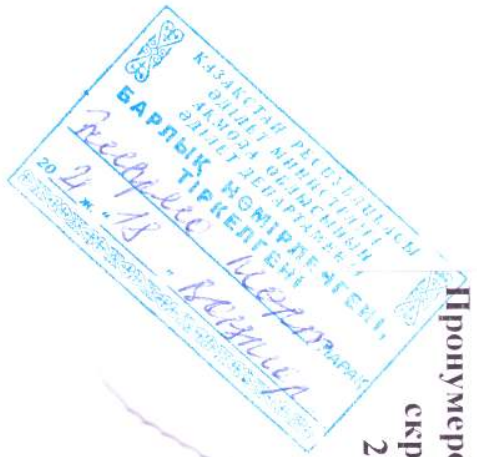 ҚАЗАҚСТАН РЕСПУБЛИКАСЫ
ӘДІЛЕТ МИНИСТРЛІГІ
АҚМОЛА ОБЛЫСЫНЫҢ
ӘДІЛЕТ ДЕПАРТАМЕНТІ
БАРЛЫҚ НӨМІРЛЕНГЕНІ,
ТІРКЕЛГЕНІ
ПАРАҚ
20 21 ж. "18"
Пронумеро
скр
2